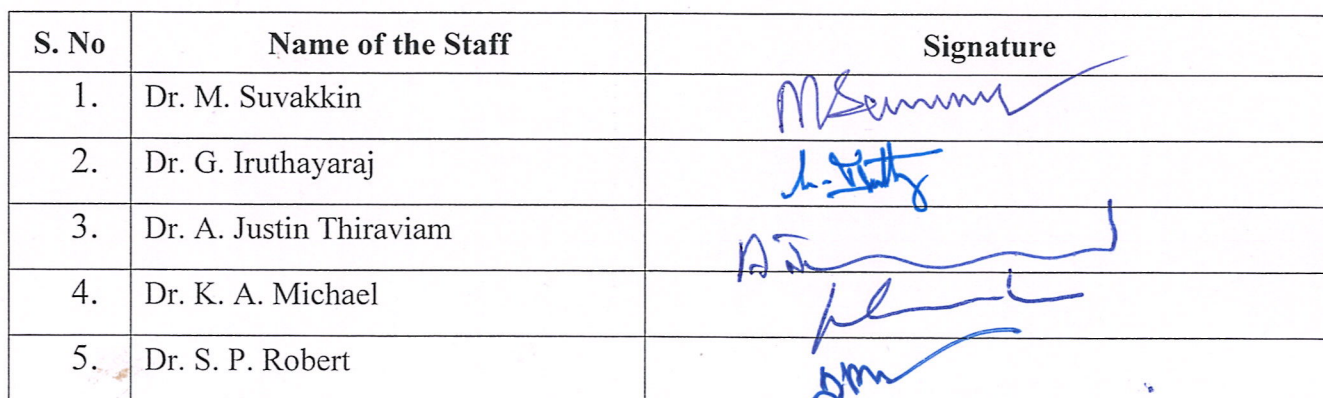 S. No Name of the Staff Signature
1. Dr. M. Suvakkin
2. Dr. G. Iruthayaraj
3. Dr. A. Justin Thiraviam
4. Dr. K. A. Michael
5. Dr. S. P. Robert